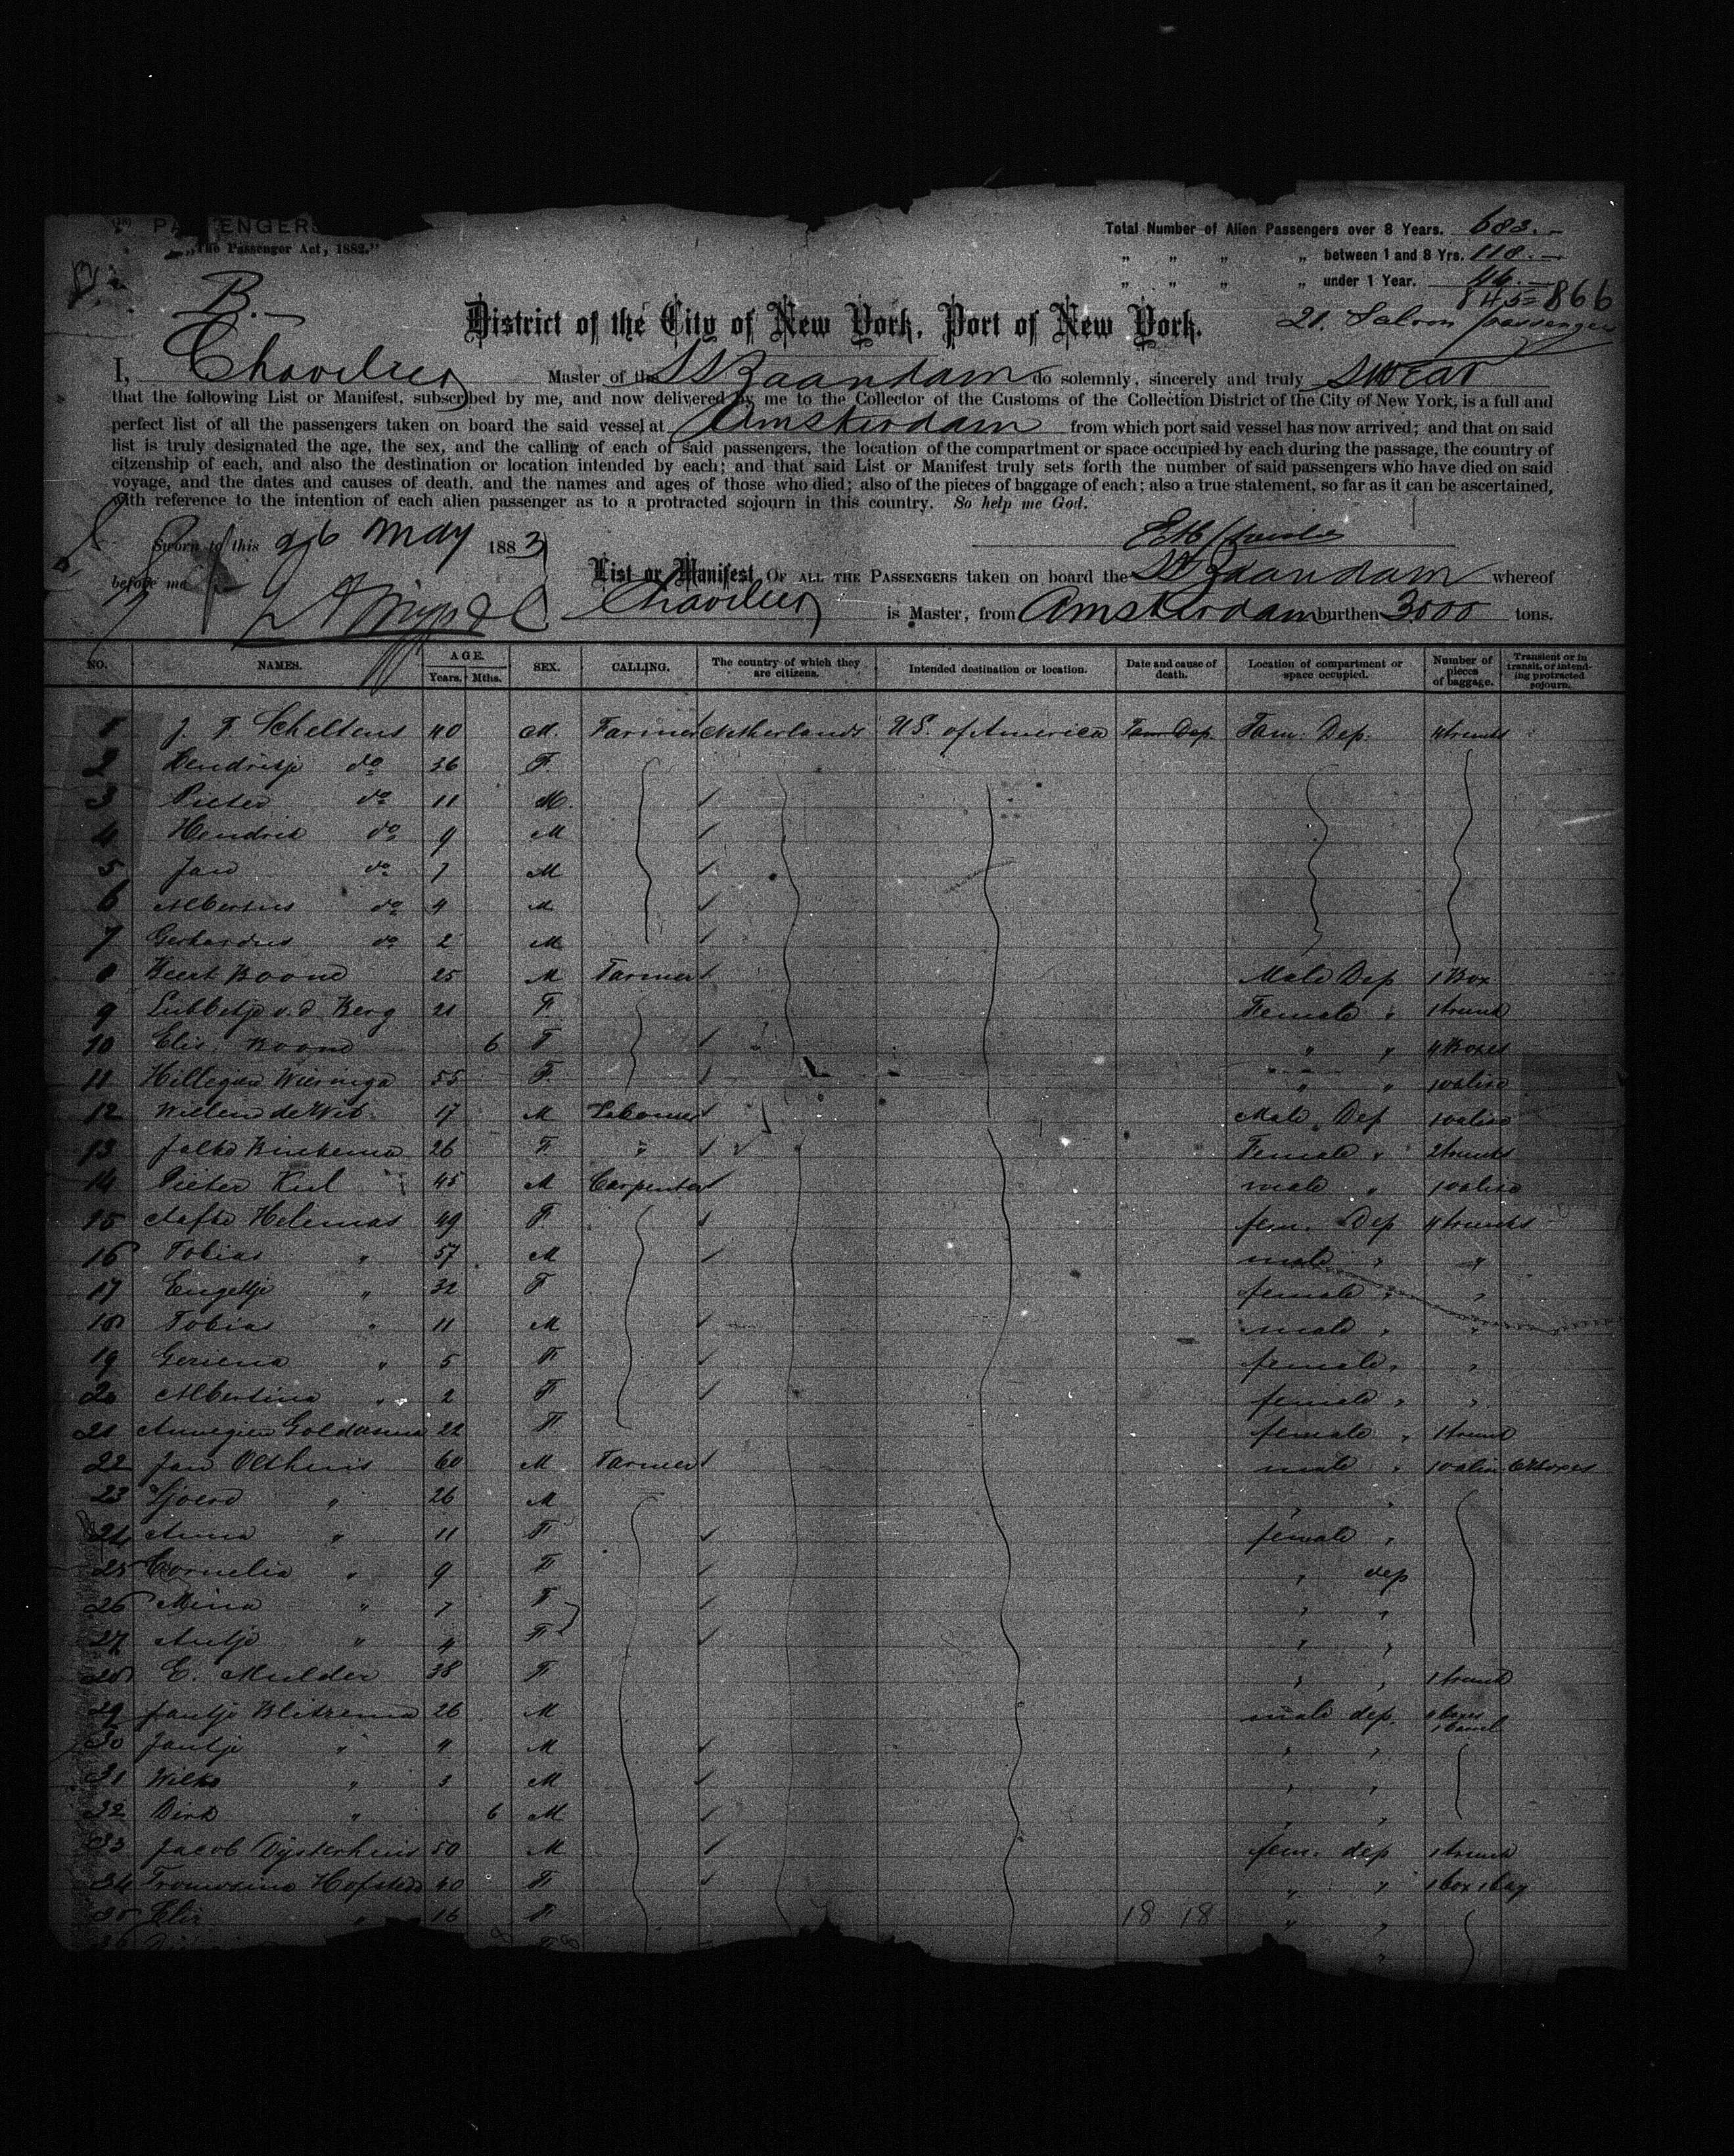 PASSENGERS
„The Passenger Act, 1882."
Total Number of Alien Passengers over 8 Years. 683.—
„ „ „ „ between 1 and 8 Yrs. 118.—
„ „ „ „ under 1 Year. 44.—
845 = 866
21. Saloon passengers
B.—
District of the City of New York, Port of New York.
I, Chevelier Master of the SS Zaandam do solemnly, sincerely and truly swear
that the following List or Manifest, subscribed by me, and now delivered by me to the Collector of the Customs of the Collection District of the City of New York, is a full and
perfect list of all the passengers taken on board the said vessel at Amsterdam from which port said vessel has now arrived; and that on said
list is truly designated the age, the sex, and the calling of each of said passengers, the location of the compartment or space occupied by each during the passage, the country of
citzenship of each, and also the destination or location intended by each; and that said List or Manifest truly sets forth the number of said passengers who have died on said
voyage, and the dates and causes of death, and the names and ages of those who died; also of the pieces of baggage of each; also a true statement, so far as it can be ascertained,
with reference to the intention of each alien passenger as to a protracted sojourn in this country. So help me God.
Sworn to this 26 May 1883
before me
List or Manifest OF ALL THE PASSENGERS taken on board the SS Zaandam whereof
Chevelier is Master, from Amsterdam burthen 3000 tons.
NO. NAMES. AGE. Years. Mths. SEX. CALLING. The country of which they are citizens. Intended destination or location. Date and cause of death. Location of compartment or space occupied. Number of pieces of baggage. Transient or in transit, or intending protracted sojourn.
1 J. F. Scheltens 40 M. Farmer Netherlands U.S. of America Fam Dep. Fam. Dep. 4 trunks
2 Hendrikje do 36 F.
3 Pieter do 11 M.
4 Hendrik do 9 M
5 Jan do 7 M
6 Albertus do 4 M
7 Gerhardus do 2 M
8 Geert Boone 25 M Farmer Male Dep 1 Box
9 Lubbetje v. d. Berg 21 F Female „ 1 trunk
10 Elis. Boone 6 F „ „ 4 Boxes
11 Hillegau Wieringa 55 F. „ „ 1 valise
12 Willem de Wit 17 M Labourer Male Dep 1 valise
13 Jelke Binkema 26 F „ Female „ 2 trunks
14 Pieter Kul 45 M Carpenter male „ 1 valise
15 Aafke Helemas 49 F fem. Dep 4 trunks
16 Tobias „ 57 M male „ „
17 Engeltje „ 32 F female „ „
18 Tobias „ 11 M male „ „
19 Geziena „ 5 F female „ „
20 Albertina „ 2 F female „ „
21 Annegien Goldamma 22 F female „ 1 trunk
22 Jan Olthuis 60 M Farmer male „ 1 valise 6 Boxes
23 Sjoerd „ 26 M „ „
24 Anna „ 11 F female „
25 Cornelia „ 9 F „ dep
26 Mina „ 7 F „ „
27 Antje „ 4 F „ „
28 E. Mulder 38 F „ „ 1 trunk
29 Jantje Blitzema 26 M male dep.
30 Jantje „ 4 M „ „
31 Wilko „ 3 M „ „
32 Dirk „ 6 M „ „
33 Jacob Oysterhuis 50 M fem. dep 1 trunk
34 Hofstede 40 F „ „ 1 box 1 bag
35 Elis „ 16 F 18 18 „ „